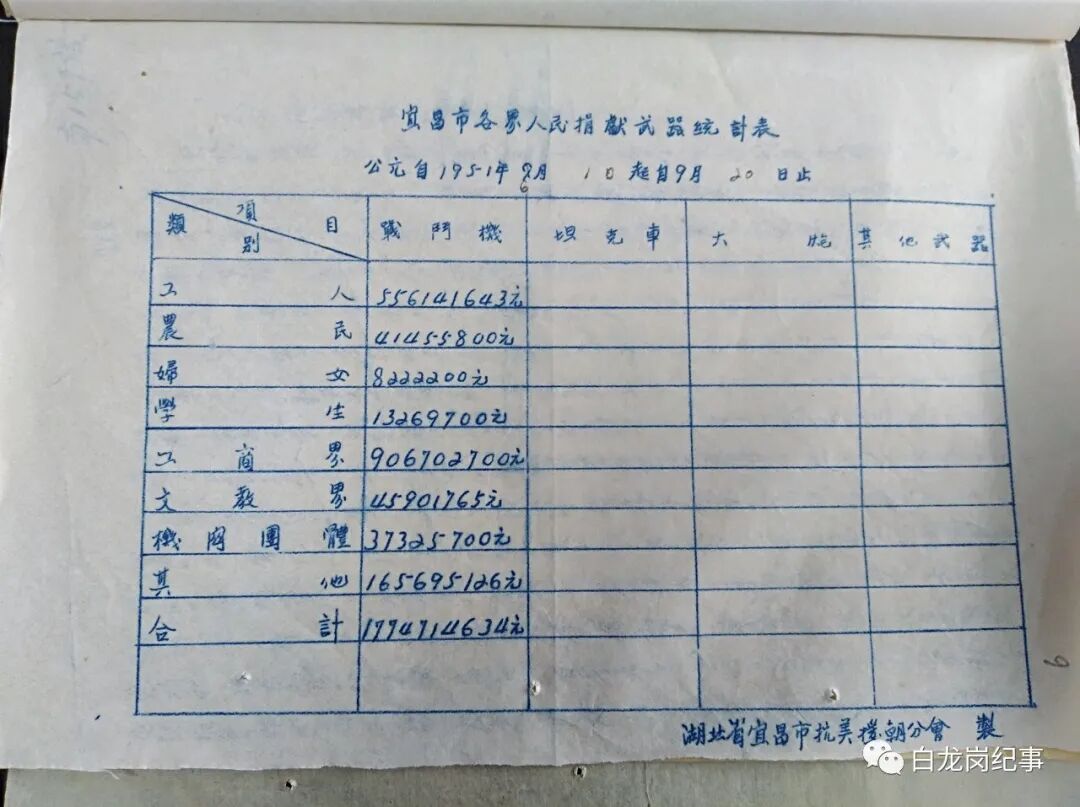 宜昌市各界人民捐獻武器統計表
公元自1951年6月 1日起自9月 20日止
項目
類別
戰鬥機 坦克車 大炮 其他武器
工人 556141643元
農民 41455800元
婦女 8222200元
學生 13269700元
工商界 906702700元
文教界 45901765元
機関團體 37325700元
其他 165695126元
合計 1774714634元
湖北省宜昌市抗美援朝分會 製
白龙岗纪事